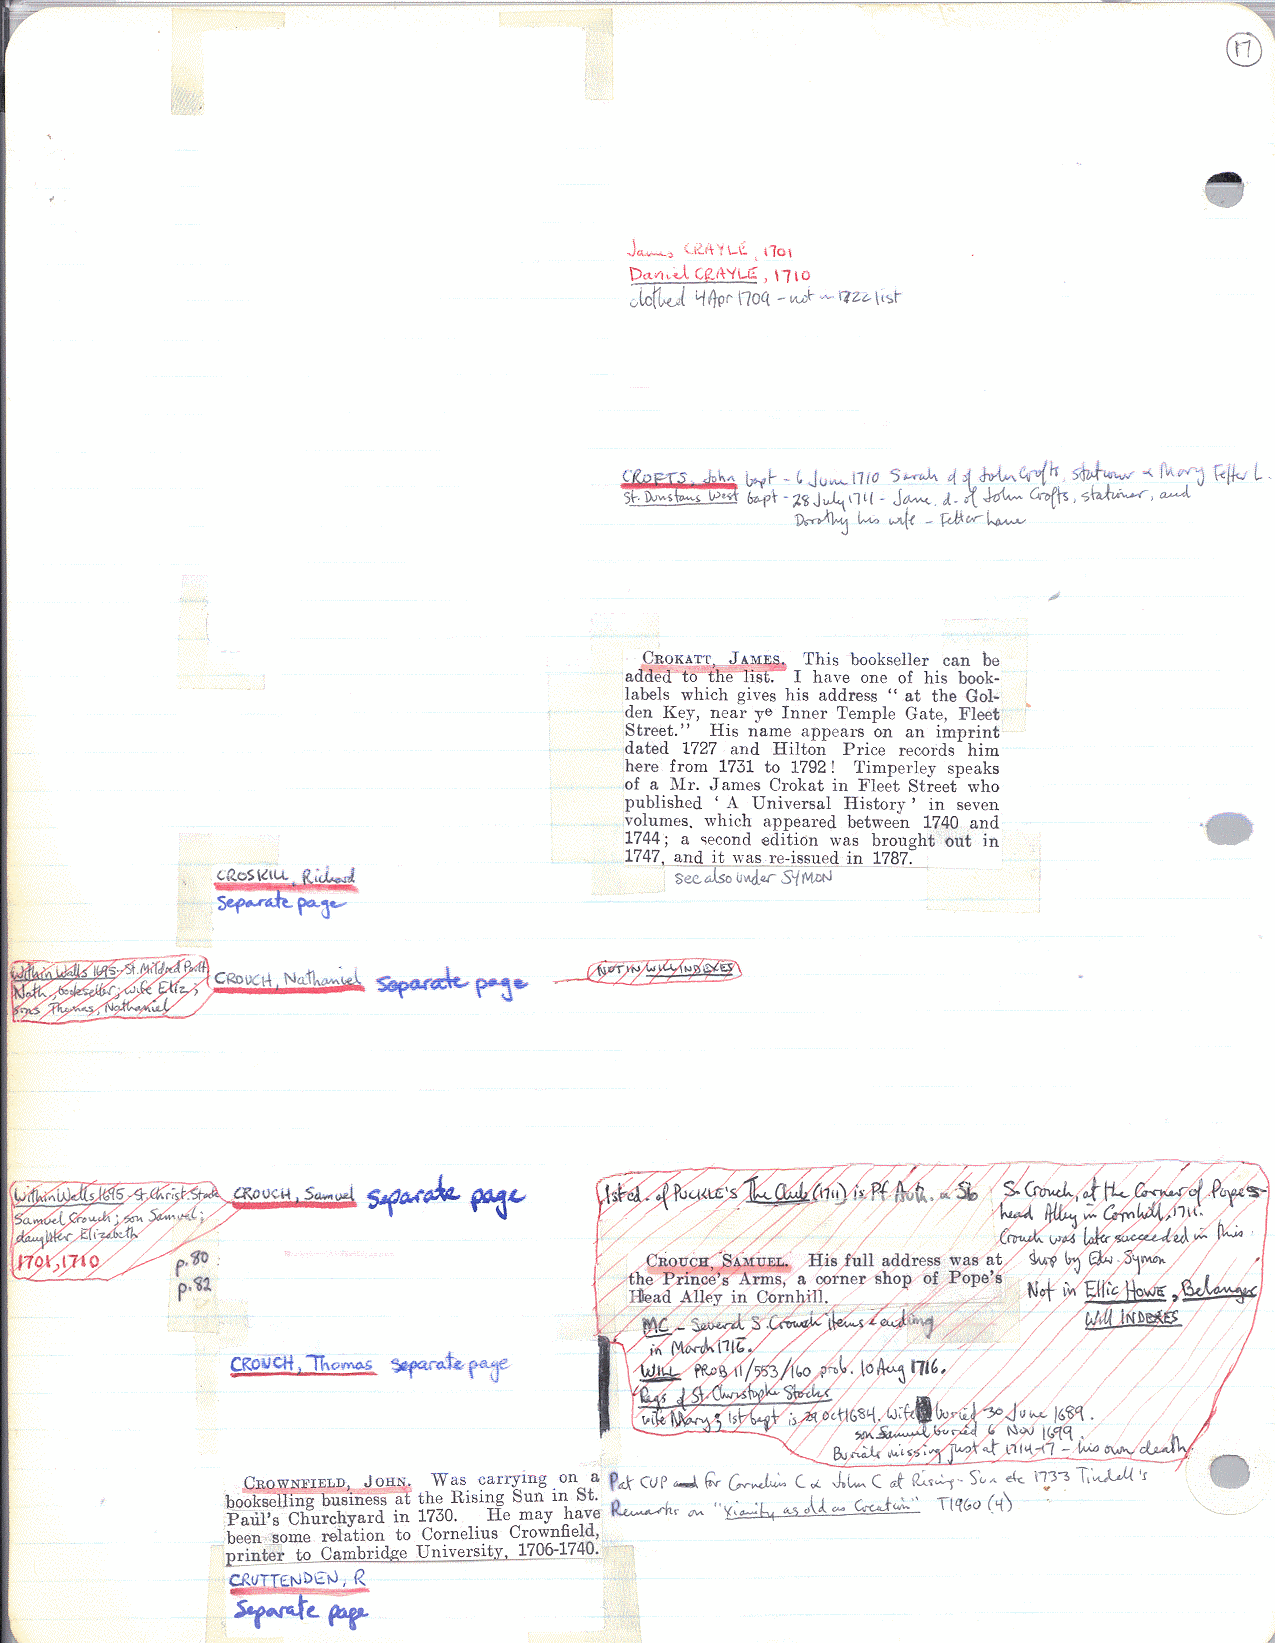 17
James CRAYLE, 1701
Daniel CRAYLE, 1710
clothed 4 Apr 1709 - not in 1722 list
CROFTS, John bapt - 6 June 1710 Sarah d of John Crofts, stationer & Mary Fetter L.
St. Dunstans West bapt - 28 July 1711 - Jane, d. of John Crofts, stationer, and
Dorothy his wife - Fetter Lane
CROKATT, JAMES. This bookseller can be
added to the list. I have one of his book-
labels which gives his address “ at the Gol-
den Key, near ye Inner Temple Gate, Fleet
Street.” His name appears on an imprint
dated 1727 and Hilton Price records him
here from 1731 to 1792! Timperley speaks
of a Mr. James Crokat in Fleet Street who
published ‘ A Universal History ’ in seven
volumes, which appeared between 1740 and
1744; a second edition was brought out in
1747, and it was re-issued in 1787.
See also under SYMON
CROSKILL, Richard
Separate page
Within Walls 1695 - St. Mildred Poult
Nath, bookseller; wife Eliz;
sons Thomas, Nathaniel
CROUCH, Nathaniel Separate page
NOT IN WILL INDEXES
Within Walls 1695 - St. Christ. Stock
Samuel Crouch; son Samuel;
daughter Elizabeth
1701, 1710
p.80
p.82
CROUCH, Samuel Separate page
1st ed. of PUCKLE'S The Club (1711) is Pf. Auth. & Sb
S. Crouch, at the Corner of Popes-
head Alley in Cornhill, 1711.
Crouch was later succeeded in this
shop by Edw. Symon
Not in Ellic HOWE, Belanger
Will INDEXES
CROUCH, SAMUEL. His full address was at
the Prince's Arms, a corner shop of Pope's
Head Alley in Cornhill.
MC - Several S. Crouch items - ending
in March 1716.
WILL PROB 11/553/160 prob. 10 Aug 1716.
Regs of St. Christophe Stocks
wife Mary; 1st bapt is 29 Oct 1684. Wife buried 30 June 1689.
son Samuel buried 6 Nov 1699.
Burials missing just at 1714-17 - his own death.
CROUCH, Thomas Separate page
CROWNFIELD, JOHN. Was carrying on a
bookselling business at the Rising Sun in St.
Paul's Churchyard in 1730. He may have
been some relation to Cornelius Crownfield,
printer to Cambridge University, 1706-1740.
Pat CUP and for Cornelius C & John C at Rising-Sun etc 1733 Tindell's
Remarks on "Xianity as old as Creation" T1960 (4)
CRUTTENDEN, R
Separate page